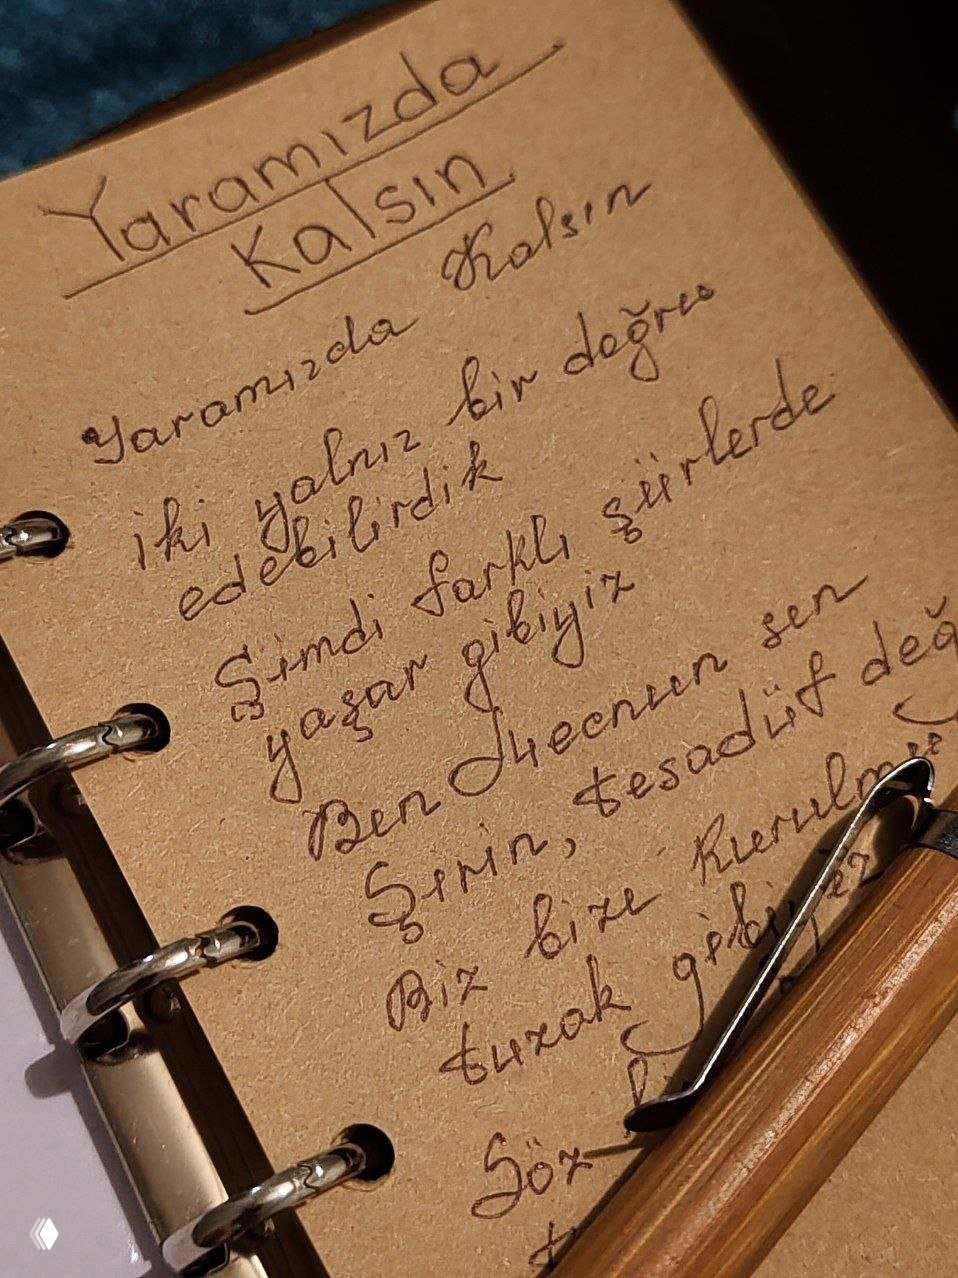 Yaramızda
Kalsın
Yaramızda Kalsın
iki yalnız bir doğru
edebilirdik
Şimdi farklı şiirlerde
yaşar gibiyiz
Ben Juecnun sen
Şirin, tesadüf değ
Biz bize kurulmu
tuzak gibiyiz
Söz